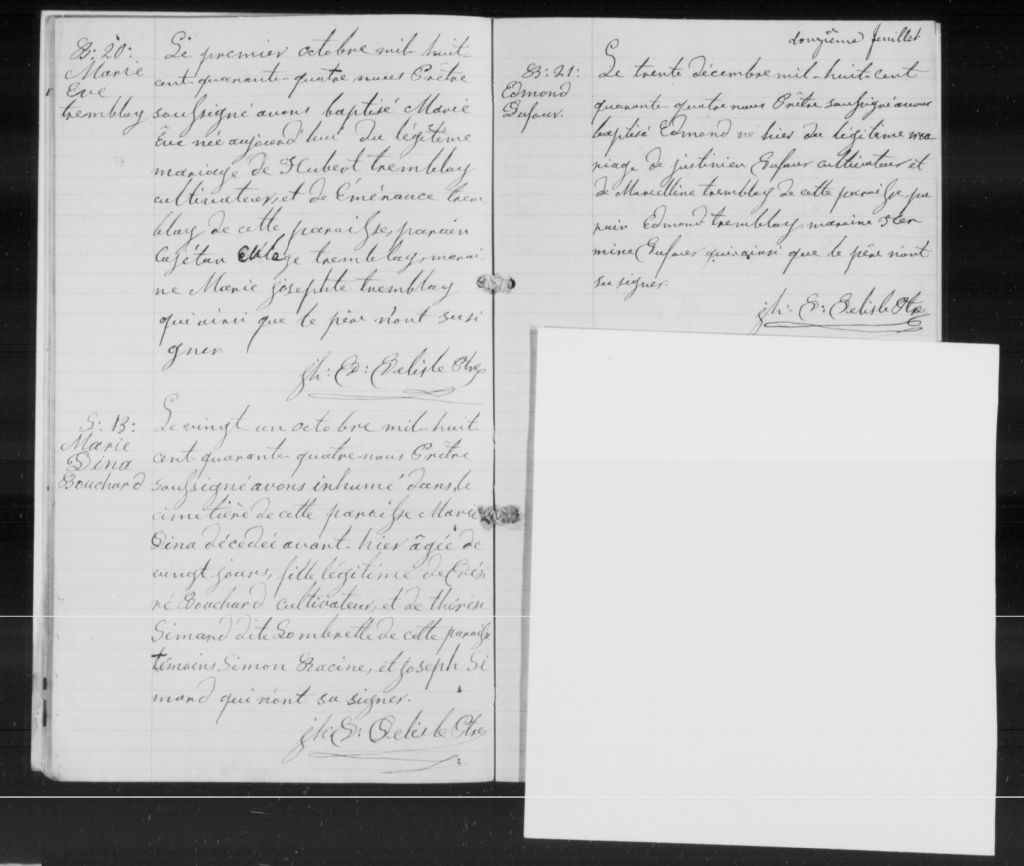 B: 20:
Marie
Eve
tremblay
Le premier octobre mil-huit
cent-quarante-quatre nous Prêtre
soussigné avons baptisé Marie
Êve née aujourd'hui du légitime
mariage de Hubert tremblay
cultivateur, et de Émérance trem
blay de cette paroisse, parrain
Cajétan tremblay, marai
ne Marie josephte tremblay
qui ainsi que le père n'ont su si
gner.
jh: D: Delisle Ptre
S: 13:
Marie
Dina
Bouchard
Le vingt un octobre mil-huit
cent-quarante-quatre nous Prêtre
soussigné avons inhumé dans le
cimetière de cette paroisse Marie
Dina décédée avant-hier âgée de
vingt jours, fille légitime de Dési
ré Bouchard cultivateur, et de thérèse
Simard dite Lombrette de cette paroisse
témoins, Simon Racine, et joseph Si
mard qui n'ont su signer.
jh: D: Delisle Ptre
douzième feuillet
B: 21:
Edmond
Dufour.
Le trente décembre mil-huit-cent
quarante-quatre nous Prêtre soussigné avons
baptisé Edmond né hier du légitime ma
riage de justinien Dufour cultivateur et
de Marcelline tremblay de cette paroisse pa
rain Edmond tremblay, maraine Her
mine Dufour qui ainsi que le père n'ont
su signer.
jh: D: Delisle Ptre